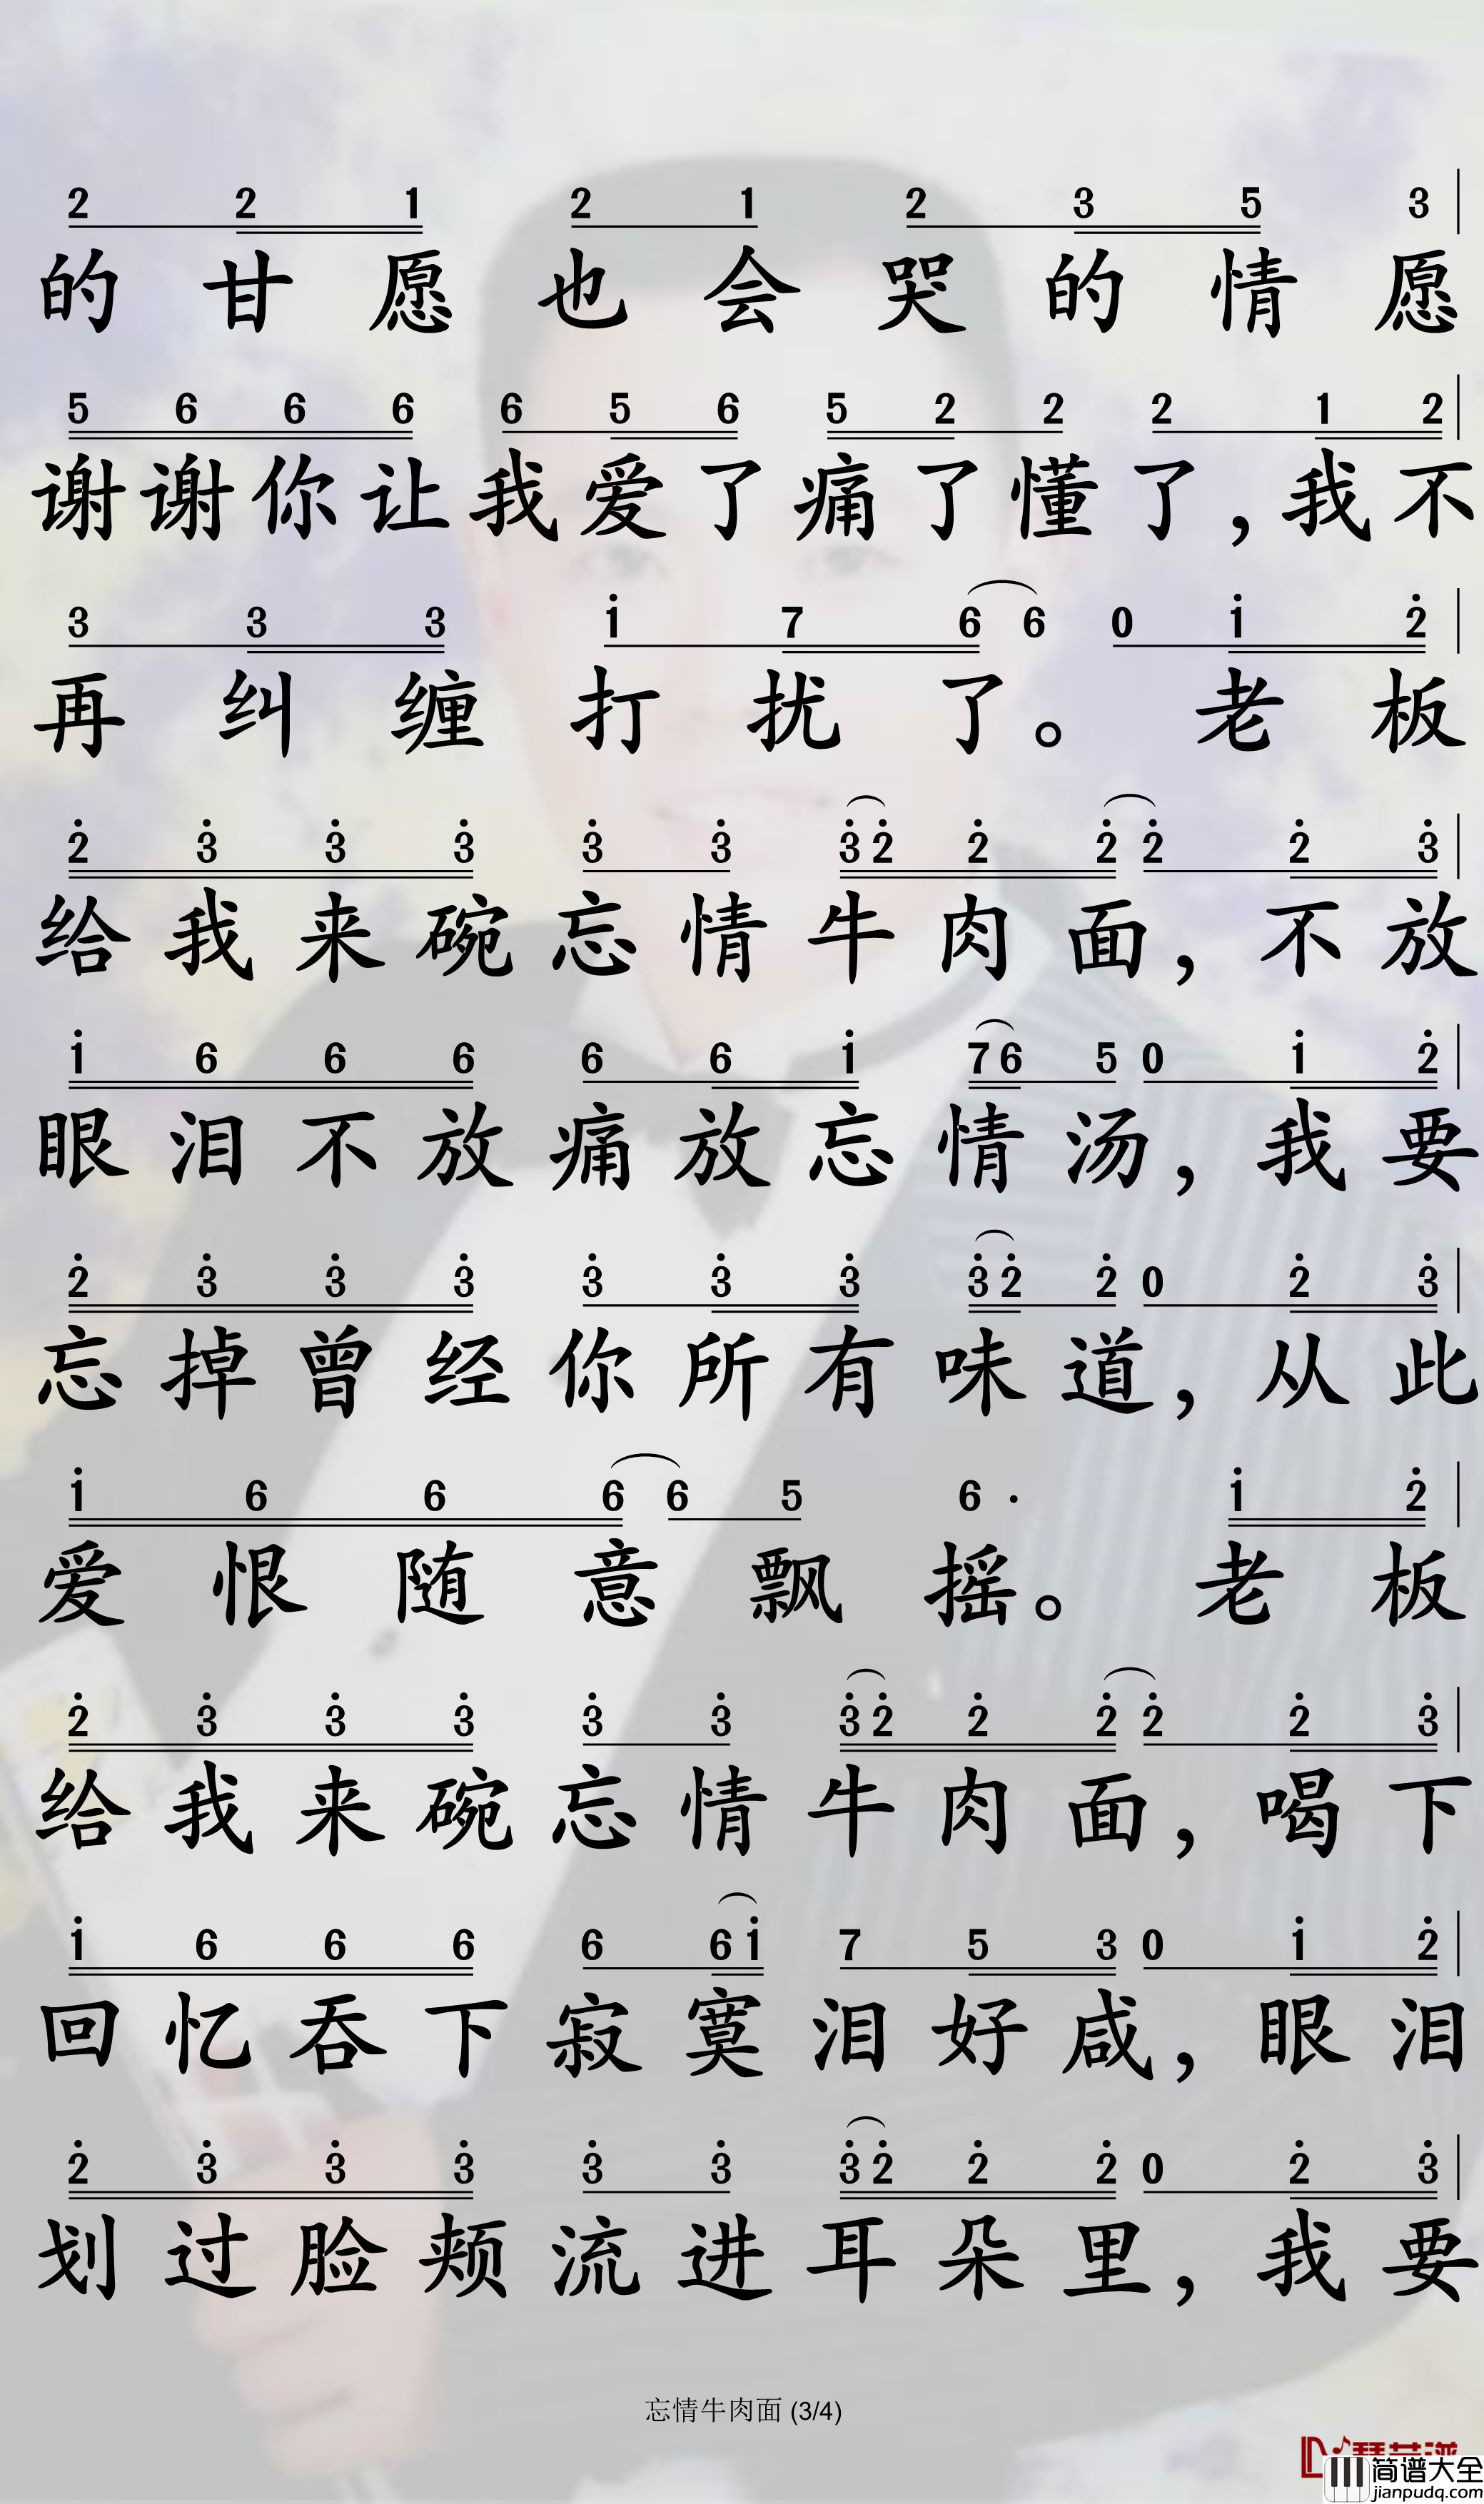 2 2 1 2 1 2 3 5 3
的甘愿也会哭的情愿
5 6 6 6 6 5 6 5 2 2 2 1 2
谢谢你让我爱了痛了懂了,我不
3 3 3 i 7 6 6 0 i 2̇
再纠缠打扰了。老板
2̇ 3̇ 3̇ 3̇ 3̇ 3̇ 3̇ 2̇ 2̇ 2̇ 2̇ 2̇ 3̇
给我来碗忘情牛肉面,不放
i 6 6 6 6 6 i 7 6 5 0 i 2̇
眼泪不放痛放忘情汤,我要
2̇ 3̇ 3̇ 3̇ 3̇ 3̇ 3̇ 3̇ 2̇ 2̇ 0 2̇ 3̇
忘掉曾经你所有味道,从此
i 6 6 6 6 5 6 · i 2̇
爱恨随意飘摇。老板
2̇ 3̇ 3̇ 3̇ 3̇ 3̇ 3̇ 2̇ 2̇ 2̇ 2̇ 2̇ 3̇
给我来碗忘情牛肉面,喝下
i 6 6 6 6 6 i 7 5 3 0 i 2̇
回忆吞下寂寞泪好咸,眼泪
2̇ 3̇ 3̇ 3̇ 3̇ 3̇ 3̇ 2̇ 2̇ 2̇ 0 2̇ 3̇
划过脸颊流进耳朵里,我要
忘情牛肉面 (3/4)
简谱大全
jianpudq.com